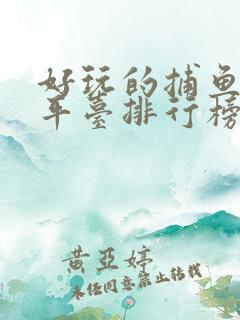 好玩的捕鱼
平臺排行榜
黄亞婷
未经同意禁止转载